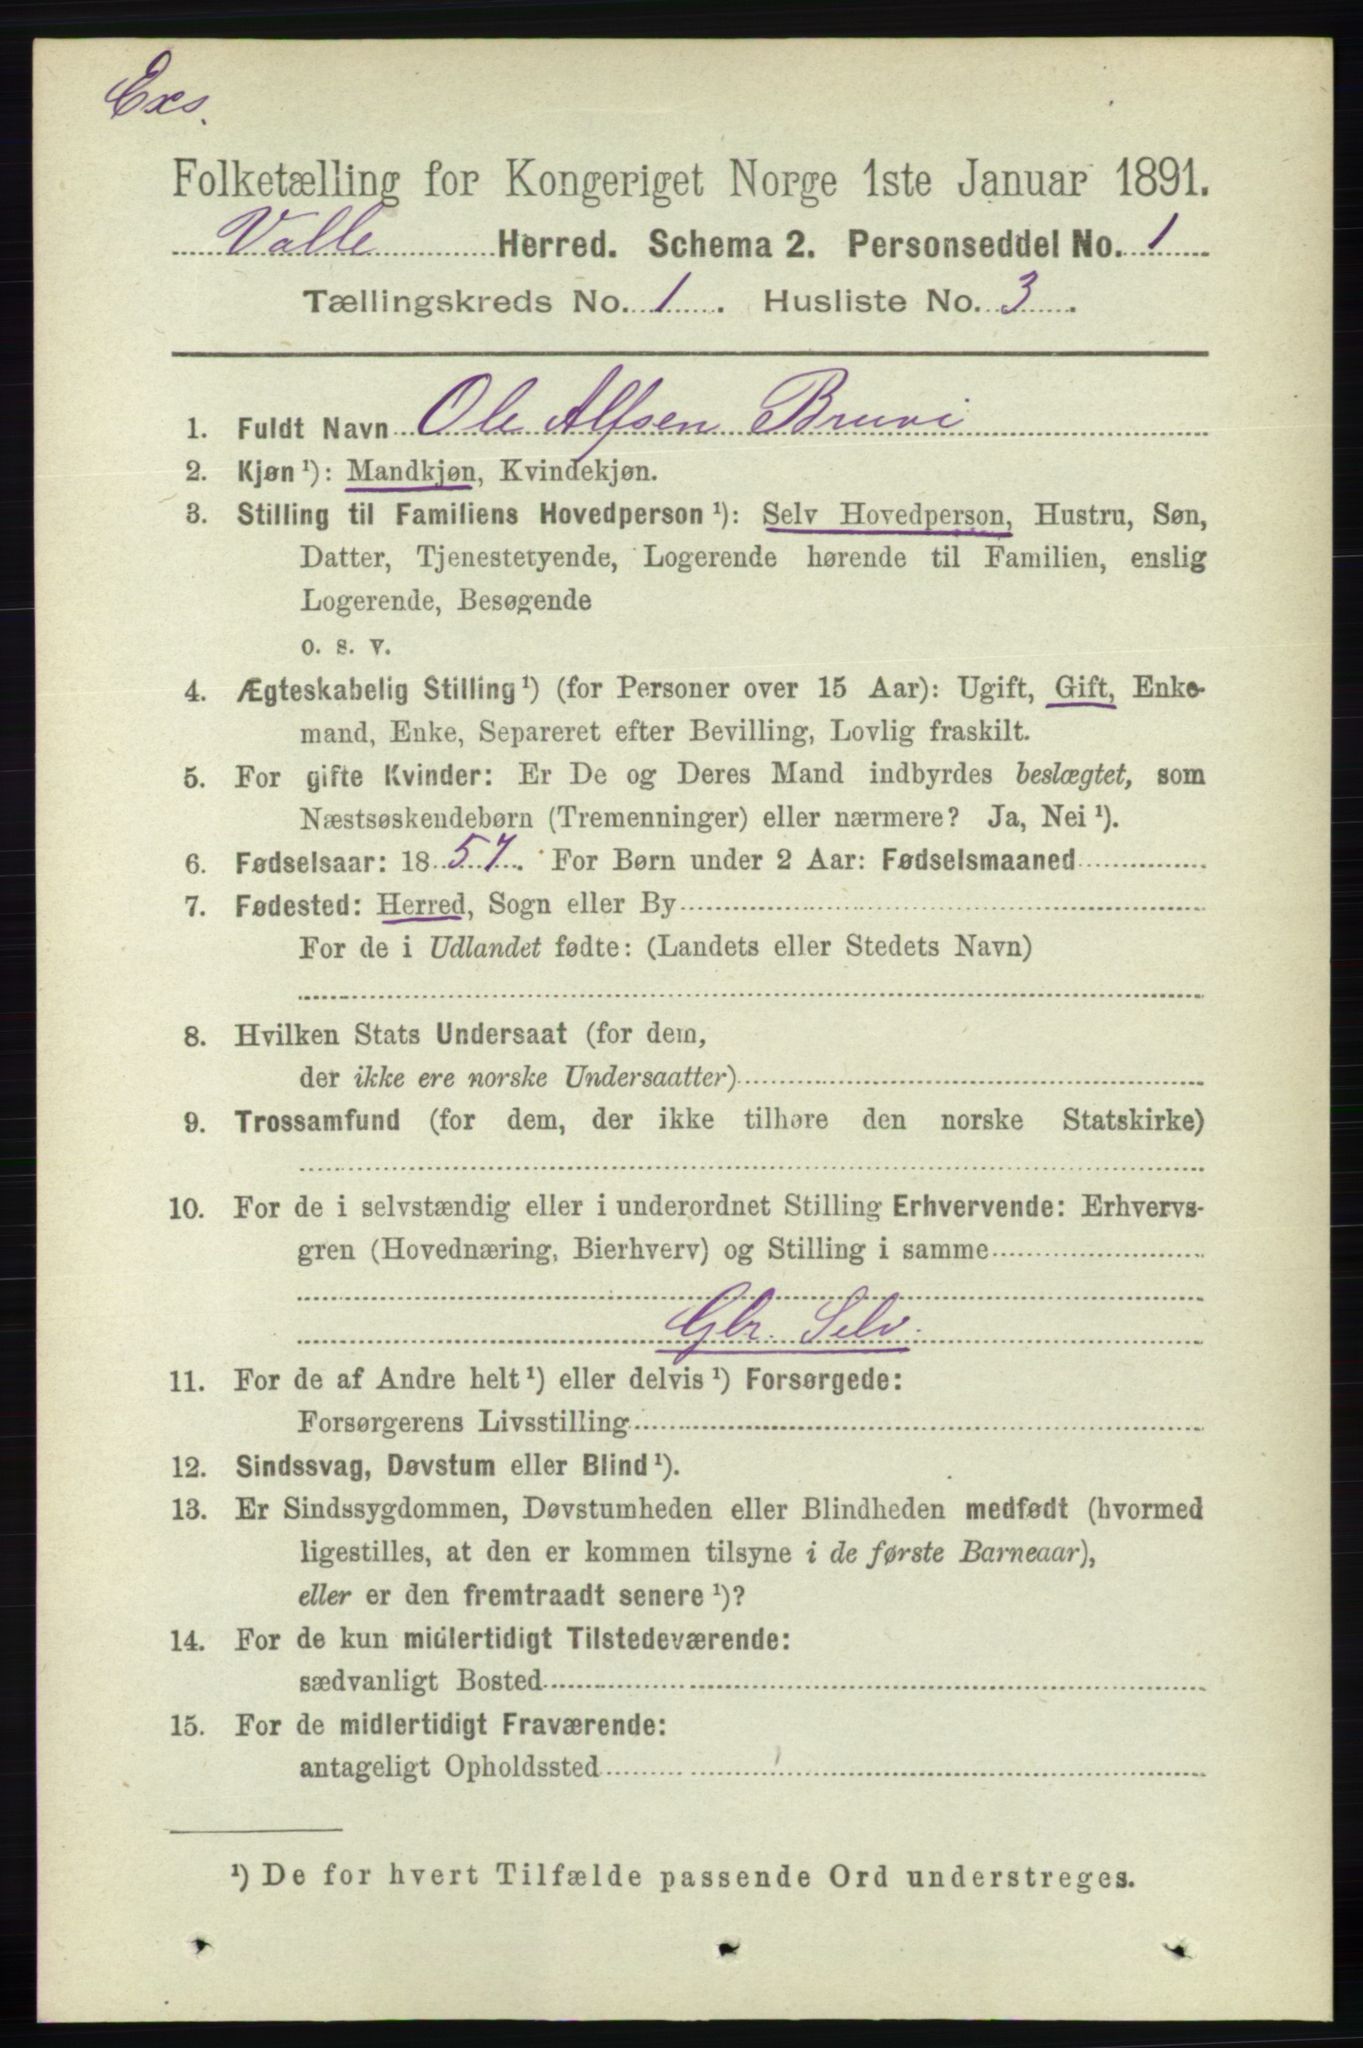 Exs.
Folketælling for Kongeriget Norge 1ste Januar 1891.
Valle Herred. Schema 2. Personseddel No. 1
Tællingskreds No. 1. Husliste No. 3.
1. Fuldt Navn Ole Alfsen Bruvi
2. Kjøn¹): Mandkjøn, Kvindekjøn.
3. Stilling til Familiens Hovedperson¹): Selv Hovedperson, Hustru, Søn,
Datter, Tjenestetyende, Logerende hørende til Familien, enslig
Logerende, Besøgende
o. s. v.
4. Ægteskabelig Stilling¹) (for Personer over 15 Aar): Ugift, Gift, Enke-
mand, Enke, Separeret efter Bevilling, Lovlig fraskilt.
5. For gifte Kvinder: Er De og Deres Mand indbyrdes beslægtet, som
Næstsøskendebørn (Tremenninger) eller nærmere? Ja, Nei¹).
6. Fødselsaar: 1857. For Børn under 2 Aar: Fødselsmaaned
7. Fødested: Herred, Sogn eller By
For de i Udlandet fødte: (Landets eller Stedets Navn)
8. Hvilken Stats Undersaat (for dem,
der ikke ere norske Undersaatter)
9. Trossamfund (for dem, der ikke tilhøre den norske Statskirke)
10. For de i selvstændig eller i underordnet Stilling Erhvervende: Erhvervs-
gren (Hovednæring, Bierhverv) og Stilling i samme
Gbr. Selv.
11. For de af Andre helt¹) eller delvis¹) Forsørgede:
Forsørgerens Livsstilling
12. Sindssvag, Døvstum eller Blind¹).
13. Er Sindssygdommen, Døvstumheden eller Blindheden medfødt (hvormed
ligestilles, at den er kommen tilsyne i de første Barneaar),
eller er den fremtraadt senere¹)?
14. For de kun midlertidigt Tilstedeværende:
sædvanligt Bosted
15. For de midlertidigt Fraværende:
antageligt Opholdssted
¹) De for hvert Tilfælde passende Ord understreges.